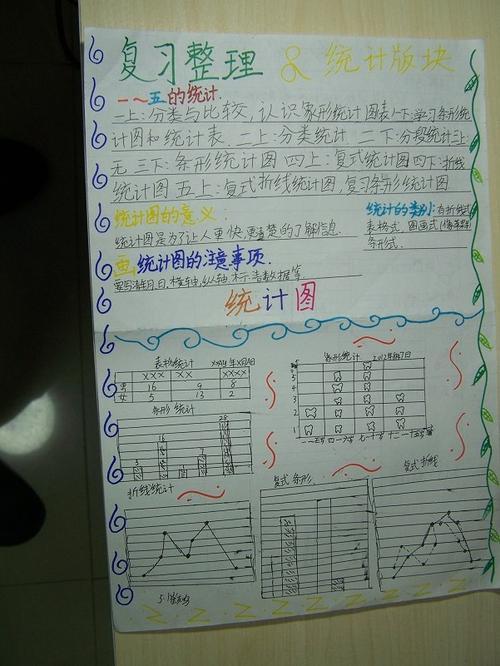 复习整理 & 统计版块
一~五的统计.
一上:分类与比较,认识象形统计图表一下:学习条形统
计图和统计表 二上:分类统计 二下:分段统计三上:
无 三下:条形统计图 四上:复式统计图四下:折线
统计图 五上:复式折线统计图,复习条形统计图
统计图的意义:
统计图是为了让人更快,更清楚的了解信息.
统计的类别:有折线式
表格式. 图画式(象形
条形式.
画统计图的注意事项.
统计图
表格统计 XX年X月X日
XXX XX XXXX
男 16 9 8
女 5 13 2
象形统计
5
4
3
2
1
条形 统计
28
16
折线统计
复式条形
复式折线